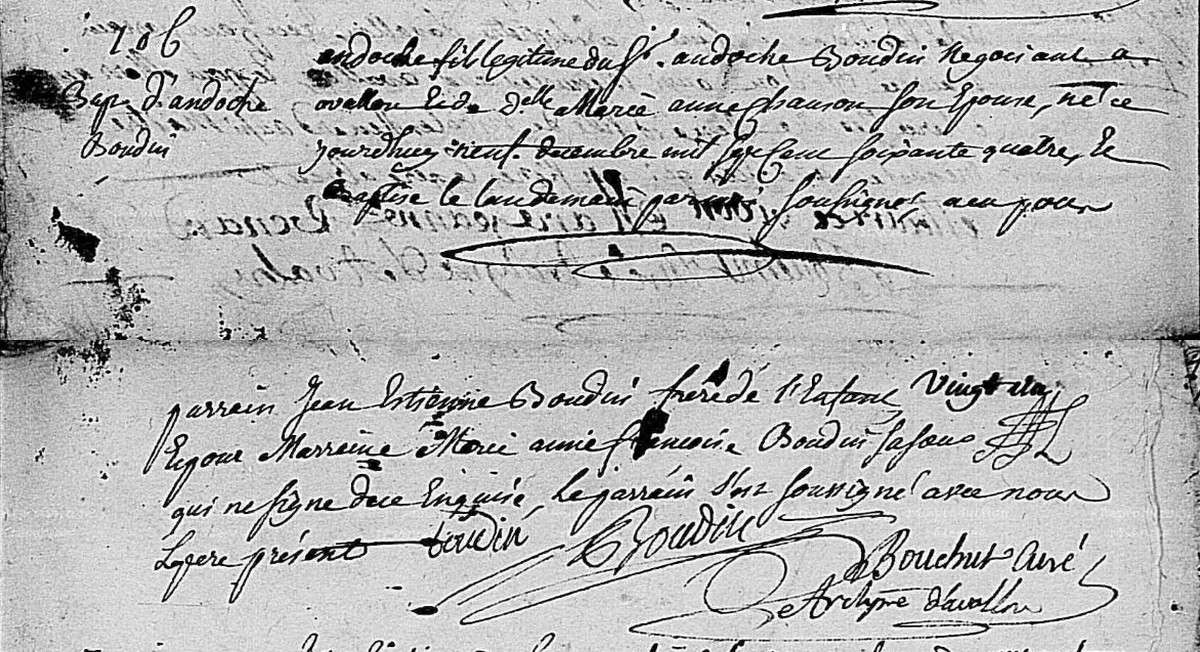 Bap. d'andoche
Boudin
andoche fils legitime du Sr. andoche Boudin Negociant a
avallon et de delle Marie anne Chanson son Epouse, né ce
jourdhuy neuf decembre mil sept cent soixante quatre, et
Baptisé le landemain par moi soussigné a eu pour
parrain Jean Estienne Boudin frere de l'Enfant
Et pour Marreine Marie anne françoise Boudin sa soeur
qui ne signe de ce Enquise, Le parrain s'est soussigné avec nous
Le pere présent Boudin Boudin
Bouchut Curé
et Archiprê d'avallon